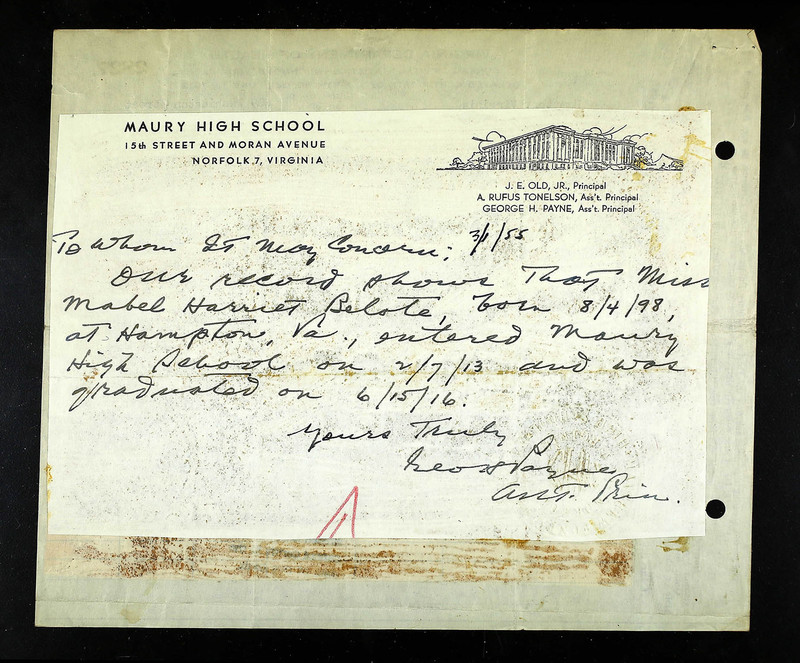 MAURY HIGH SCHOOL
15th STREET AND MORAN AVENUE
NORFOLK, 7, VIRGINIA
J. E. OLD, JR., Principal
A. RUFUS TONELSON, Ass't. Principal
GEORGE H. PAYNE, Ass't. Principal
To Whom It May Concern; 3/1/55
Our record shows That Miss
Mabel Harriet Belote, born 8/4/98,
at Hampton, Va., entered Maury
High School on 2/7/13 and was
graduated on 6/15/16.
Yours Truly
Geo H Payne
Ass't. Prin.